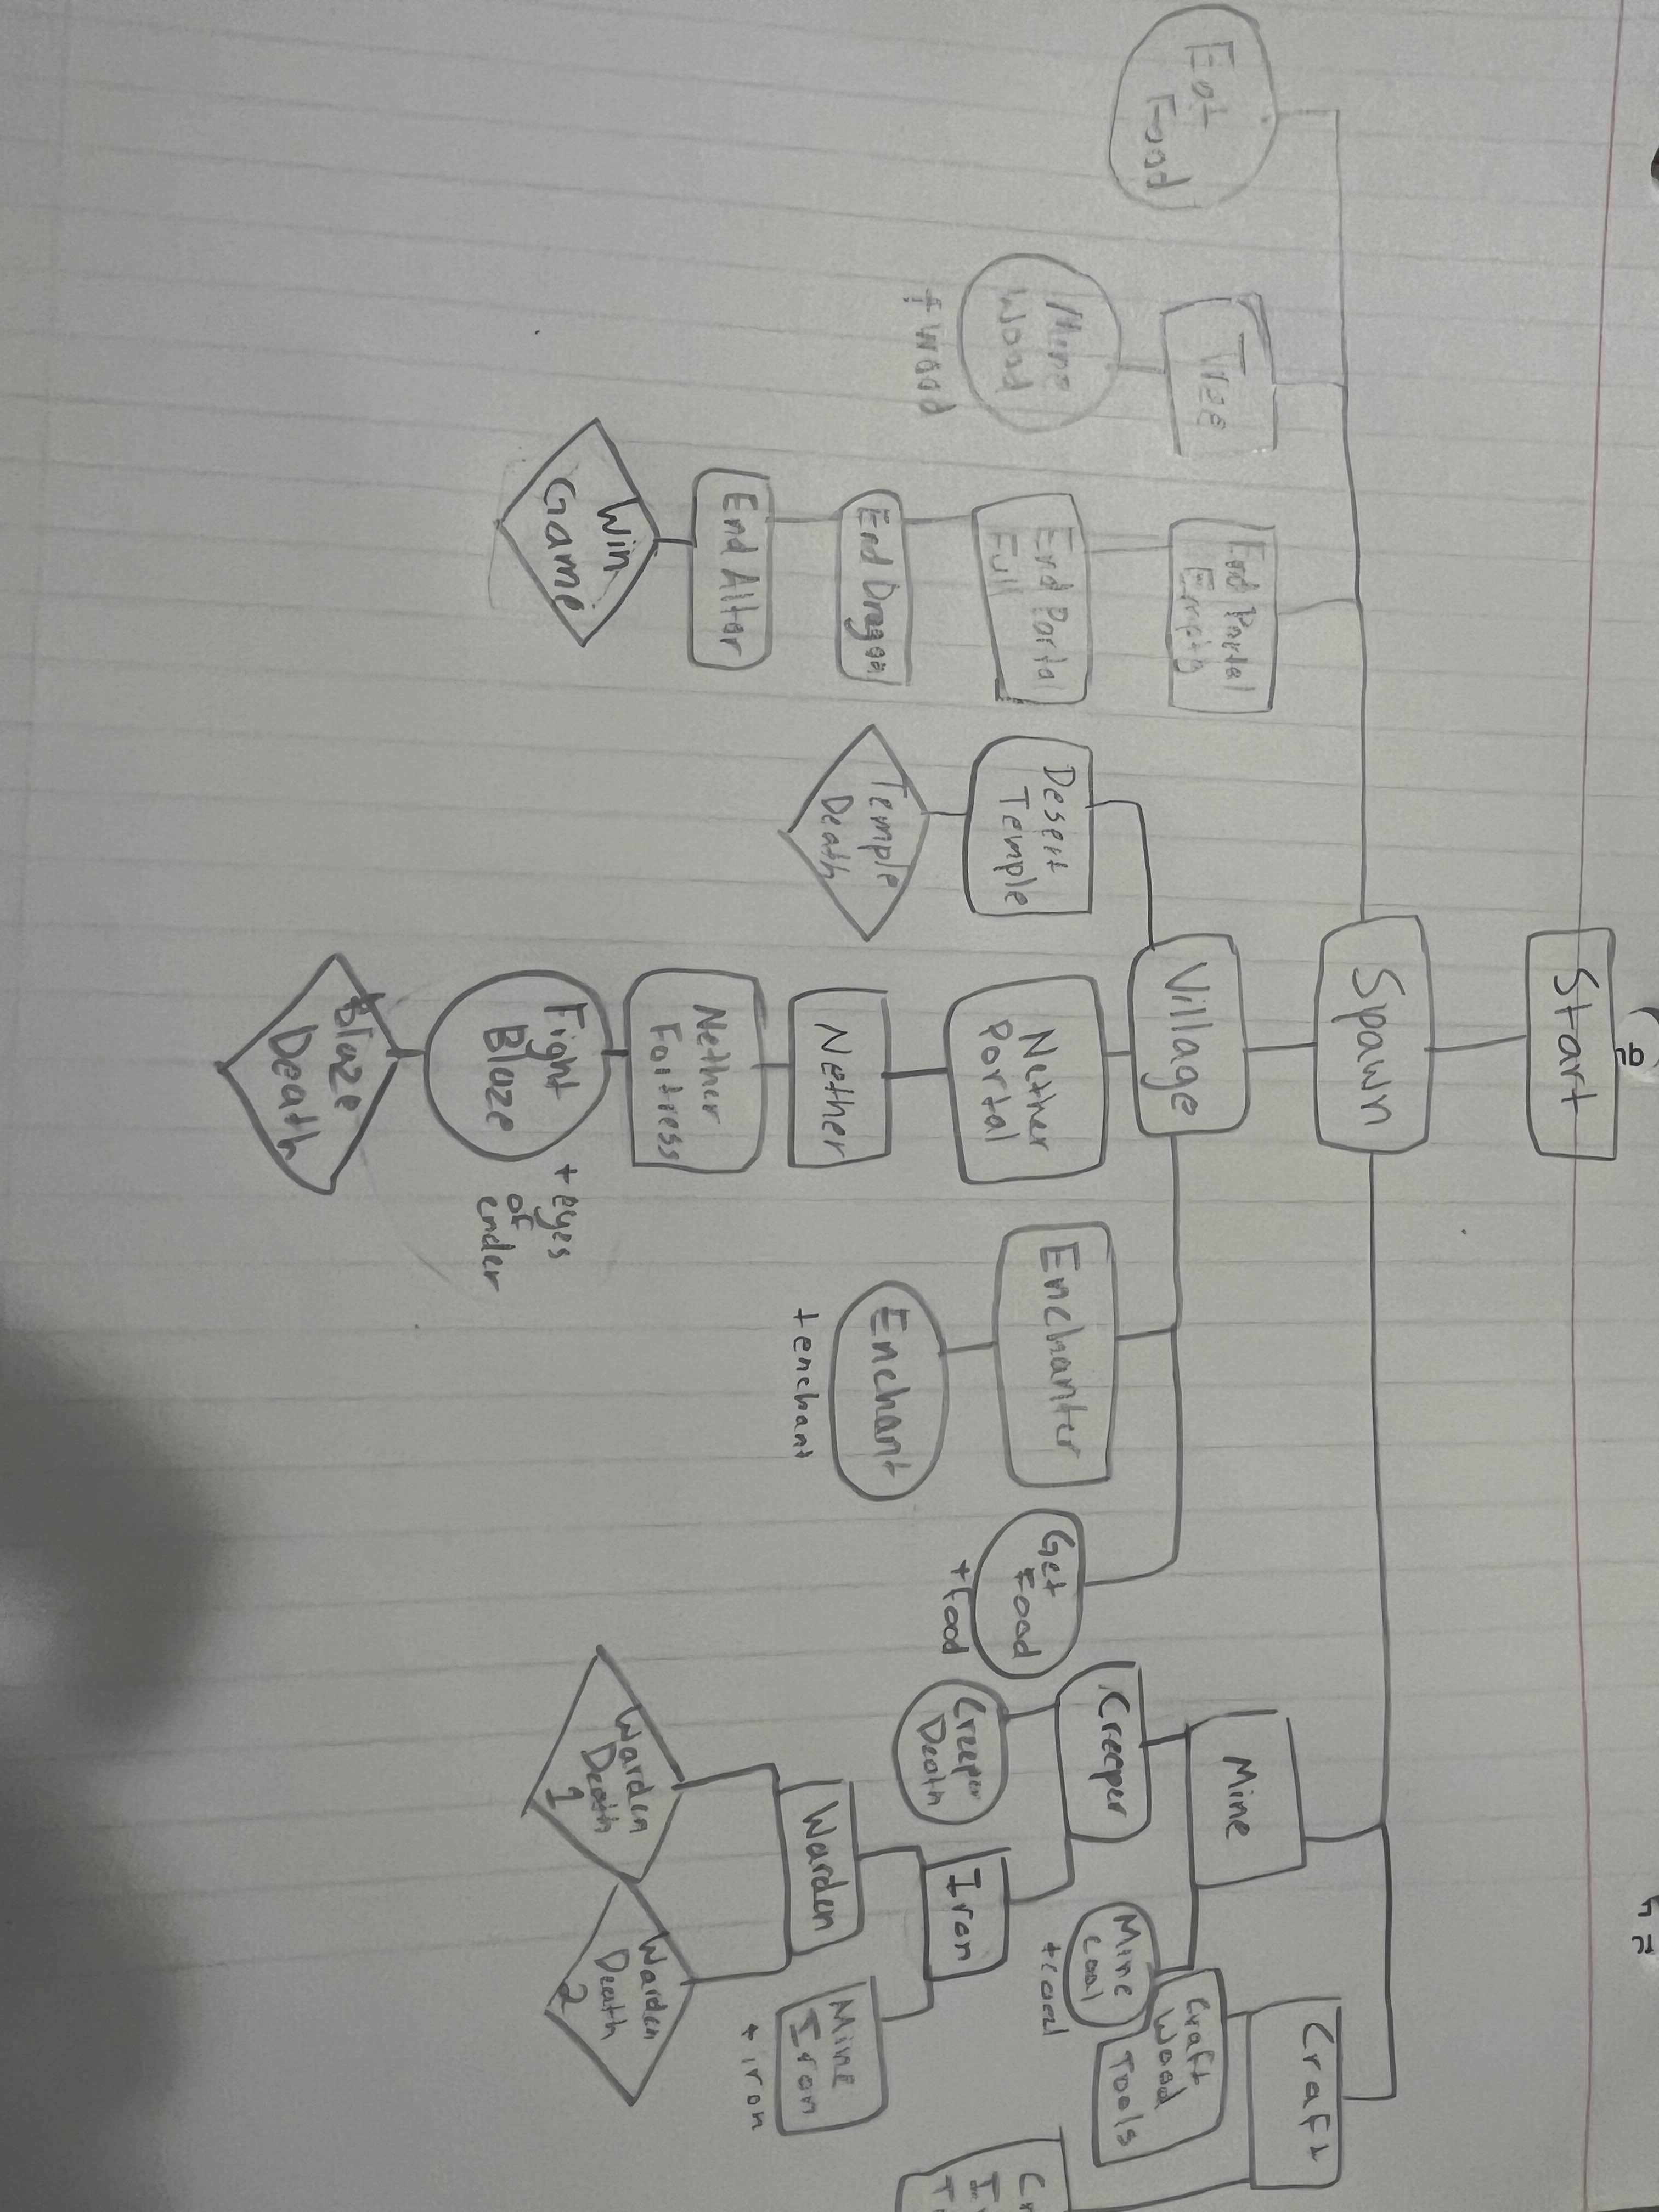 Start
Spawn
Eat
Food
Tree
Mine
Wood
+wood
End Portal
Empty
End Portal
Full
End Dragon
End Altar
Win
Game
Village
Desert
Temple
Temple
Death
Nether
Portal
Nether
Nether
Fortress
Fight
Blaze
+eyes
of
ender
Blaze
Death
Enchanter
Enchant
+enchant
Get
Food
+food
Mine
Creeper
Creeper
Death
Iron
Warden
Warden
Death
1
Warden
Death
2
Mine
Iron
+iron
Mine
Coal
+coal
Craft
Craft
Wood
Tools